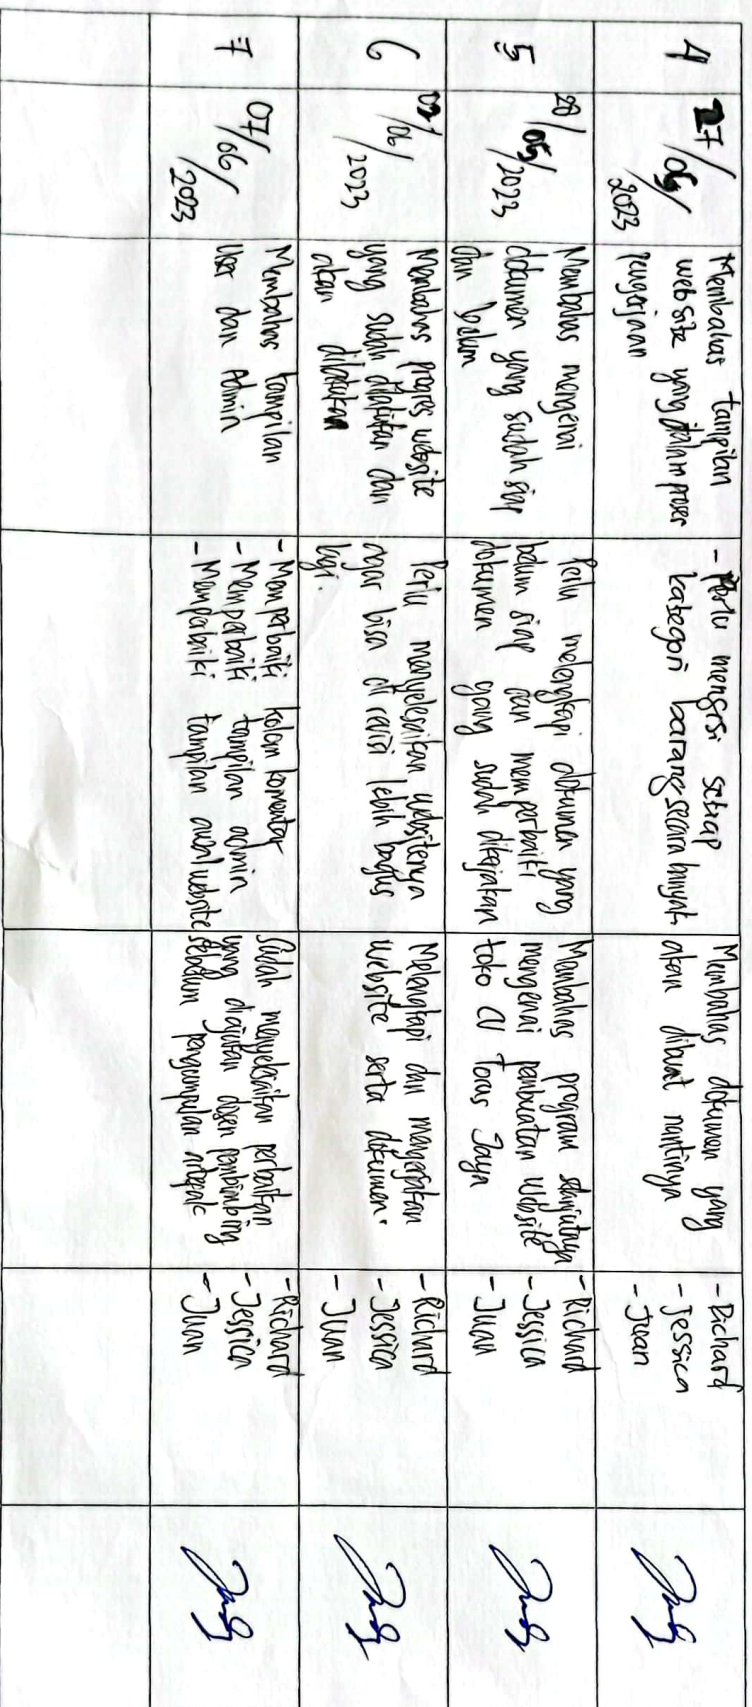 4
27/05/
2023
Membahas tampilan
website yang dalam proses
pengerjaan
- Perlu mengisi setiap
kategori barang secara banyak
Membahas dokumen yang
akan dibuat nantinya
- Richard
- Jessica
- Juan
5
28/05/2023
Membahas mengenai
dokumen yang sudah siap
dan belum
Perlu melengkapi dokumen yang
belum siap dan memperbaiki
dokumen yang sudah dikerjakan
Membahas program selanjutnya
mengenai pembuatan website
toko CV Focus Jaya
- Richard
- Jessica
- Juan
6
/06/
2023
Membahas progres website
yang sudah dilakukan dan
akan dilakukan
Perlu menyelesaikan websitenya
agar bisa di revisi lebih bagus
lagi.
Melengkapi dan mengerjakan
website serta dokumen.
- Richard
- Jessica
- Juan
7
07/06/
2023
Membahas tampilan
User dan Admin
- Memperbaiki kolom komentar
- Memperbaiki tampilan admin
- Memperbaiki tampilan awal website
Sudah menyelesaikan perbaikan
yang diajukan dosen pembimbing
sebelum pengumpulan
- Richard
- Jessica
- Juan